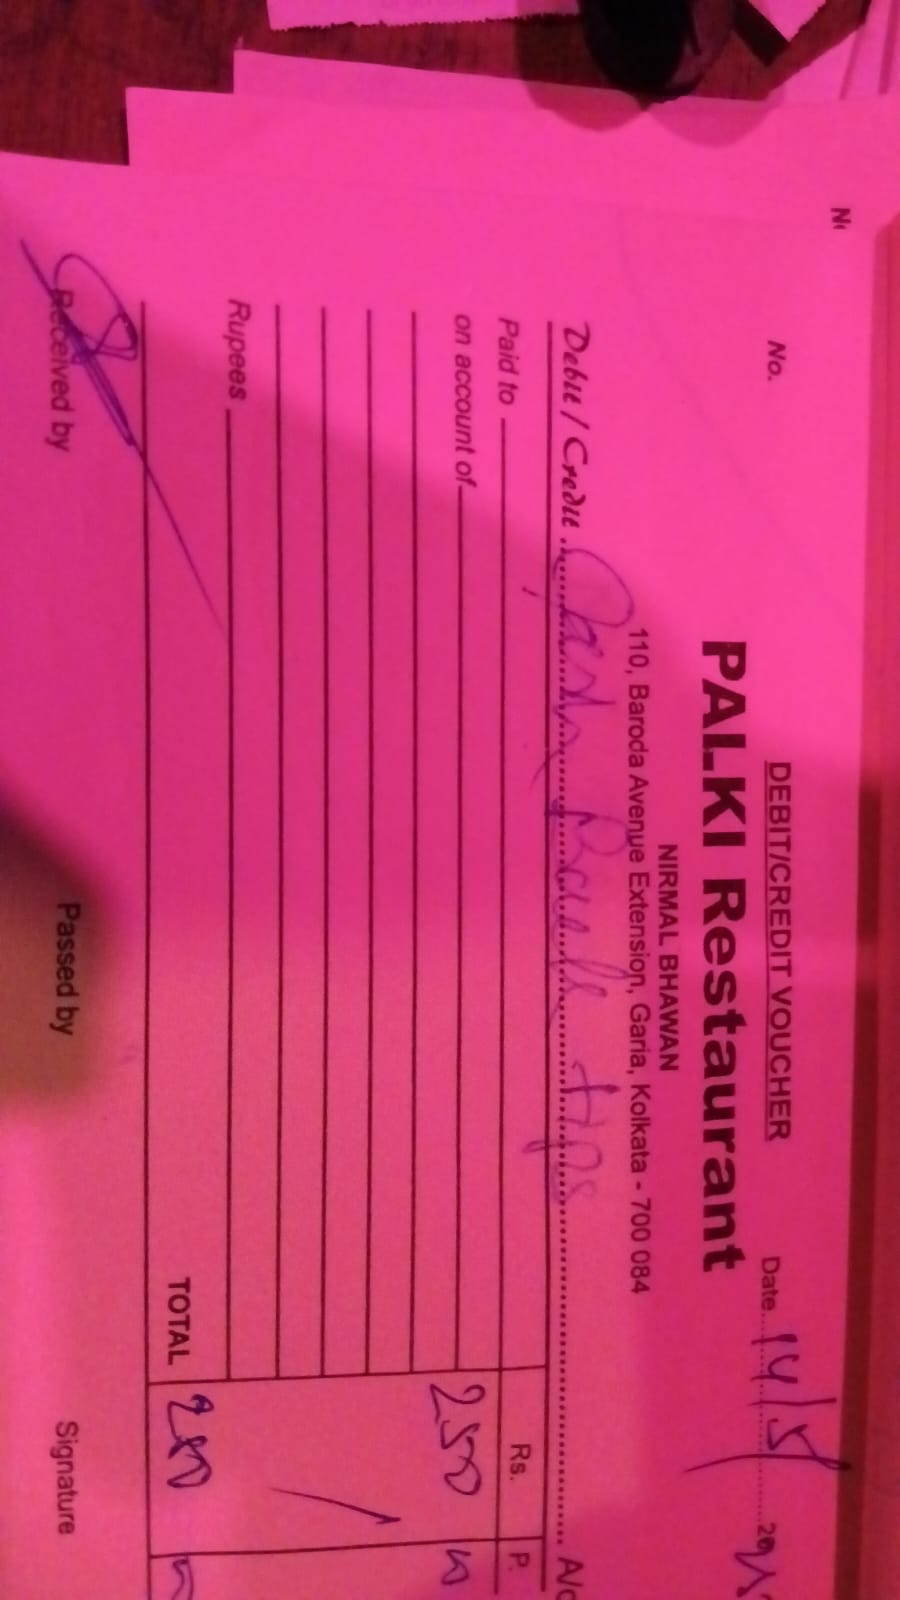 No
No.
DEBIT/CREDIT VOUCHER
Date 14/5 20
PALKI Restaurant
NIRMAL BHAWAN
110, Baroda Avenue Extension, Garia, Kolkata - 700 084
Debit / Credit A/c
Paid to Rs. P.
on account of 250
Rupees
TOTAL 250
Received by Passed by Signature